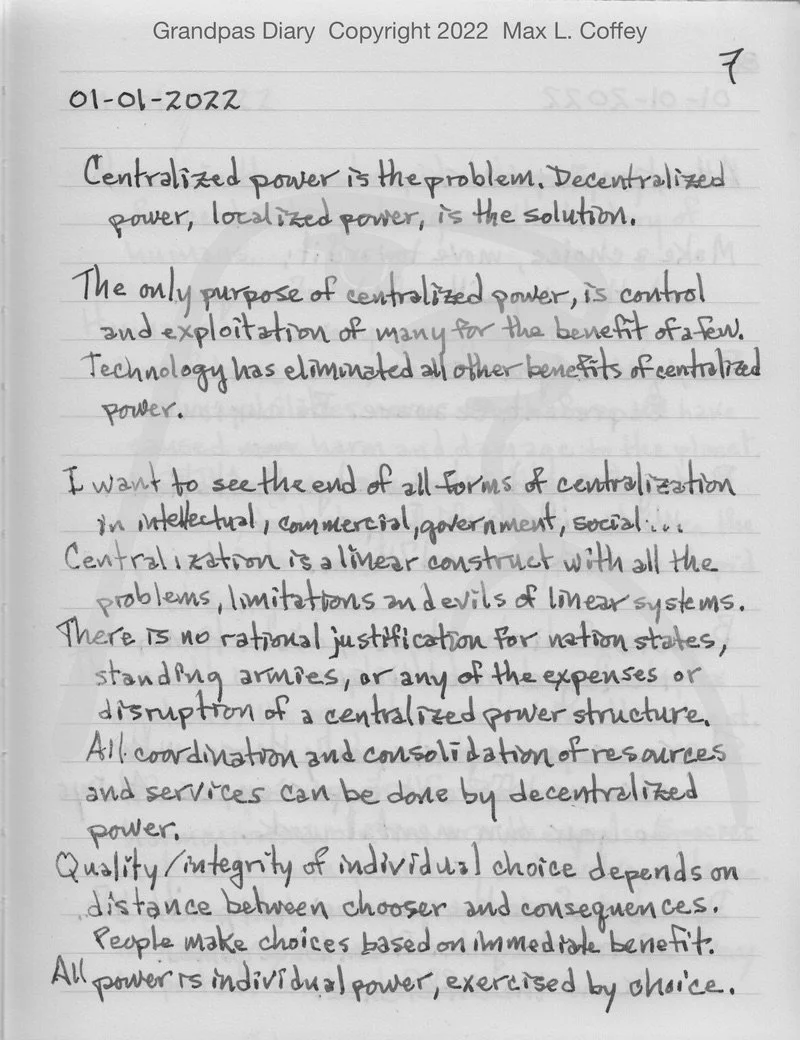 Grandpas Diary Copyright 2022 Max L. Coffey
7
01-01-2022
Centralized power is the problem. Decentralized
power, localized power, is the solution.
The only purpose of centralized power, is control
and exploitation of many for the benefit of a few.
Technology has eliminated all other benefits of centralized
power.
I want to see the end of all forms of centralization
in intellectual, commercial, government, social...
Centralization is a linear construct with all the
problems, limitations and evils of linear systems.
There is no rational justification for nation states,
standing armies, or any of the expenses or
disruption of a centralized power structure.
All coordination and consolidation of resources
and services can be done by decentralized
power.
Quality/integrity of individual choice depends on
distance between chooser and consequences.
People make choices based on immediate benefit.
All power is individual power, exercised by choice.